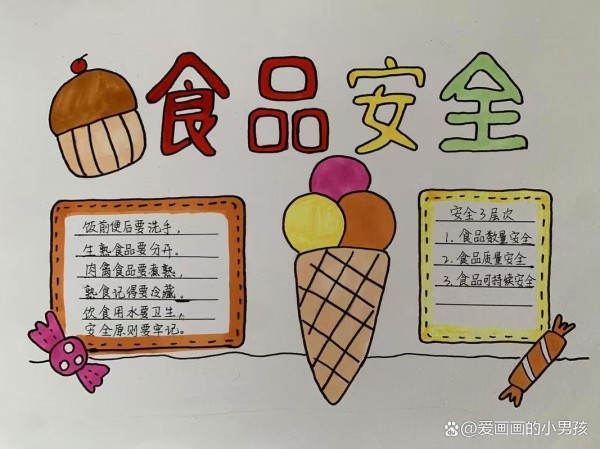 食品安全
饭前便后要洗手，
生熟食品要分开。
肉禽食品要煮熟，
熟食记得要冷藏。
饮食用水要卫生，
安全原则要牢记。
安全3层次
1. 食品数量安全
2. 食品质量安全
3. 食品可持续安全
@爱画画的小男孩